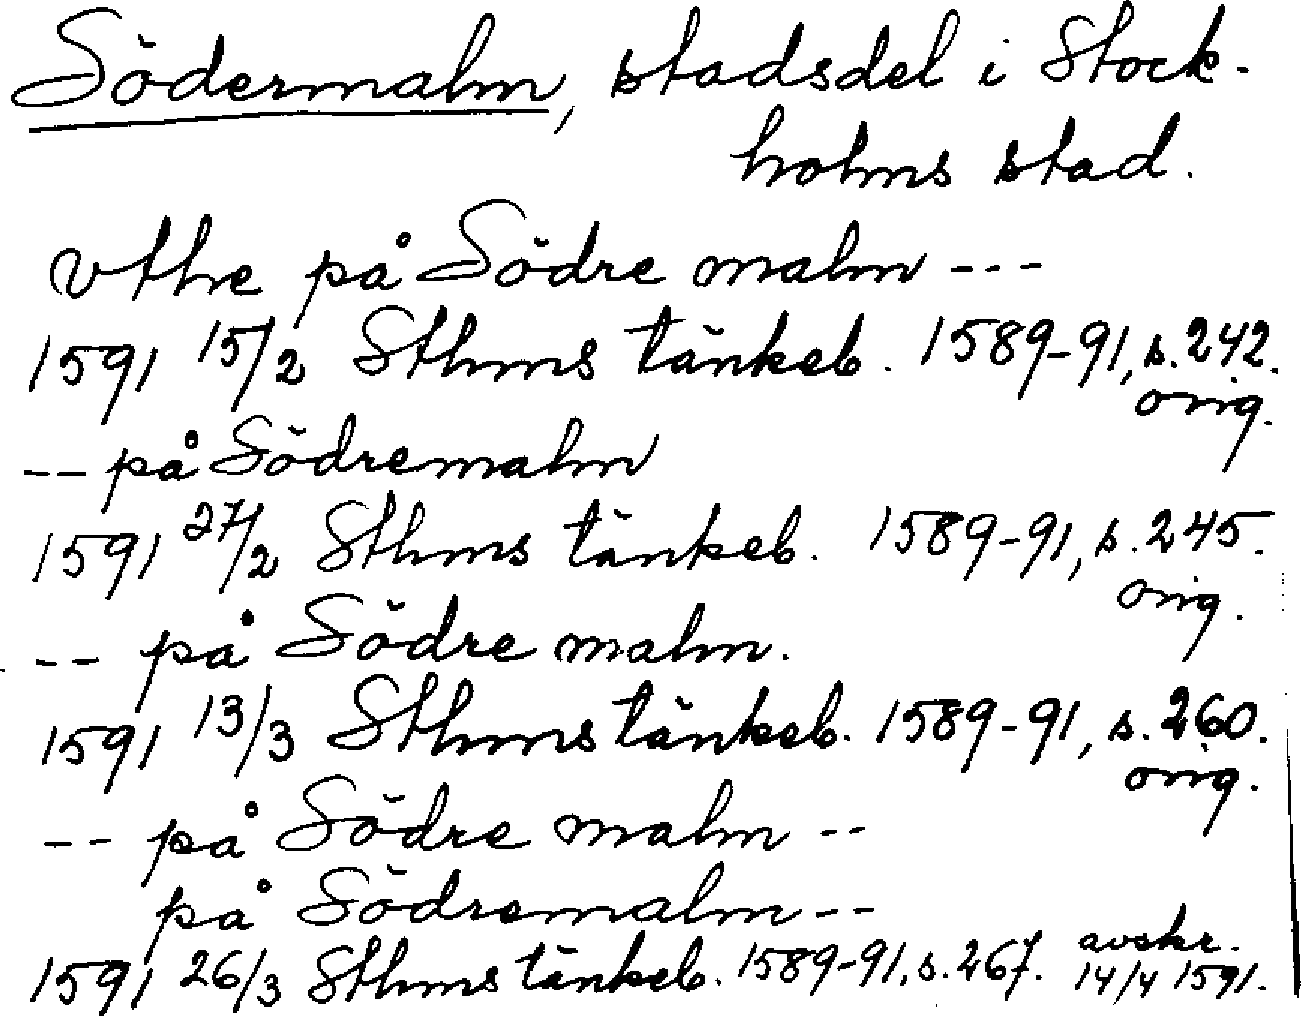 Södermalm, stadsdel i Stock-
holms stad.
vthe på Södre malm ---
1591 15/2 Sthms tänkeb. 1589-91, s. 242.
orig.
-- på Södremalm
1591 27/2 Sthms tänkeb. 1589-91, s. 245.
orig.
-- på Södre malm.
1591 13/3 Sthms tänkeb. 1589-91, s. 260.
orig.
-- på Södre malm --
på Södremalm --
1591 26/3 Sthms tänkeb. 1589-91, s. 267. avskr.
14/4 1591.